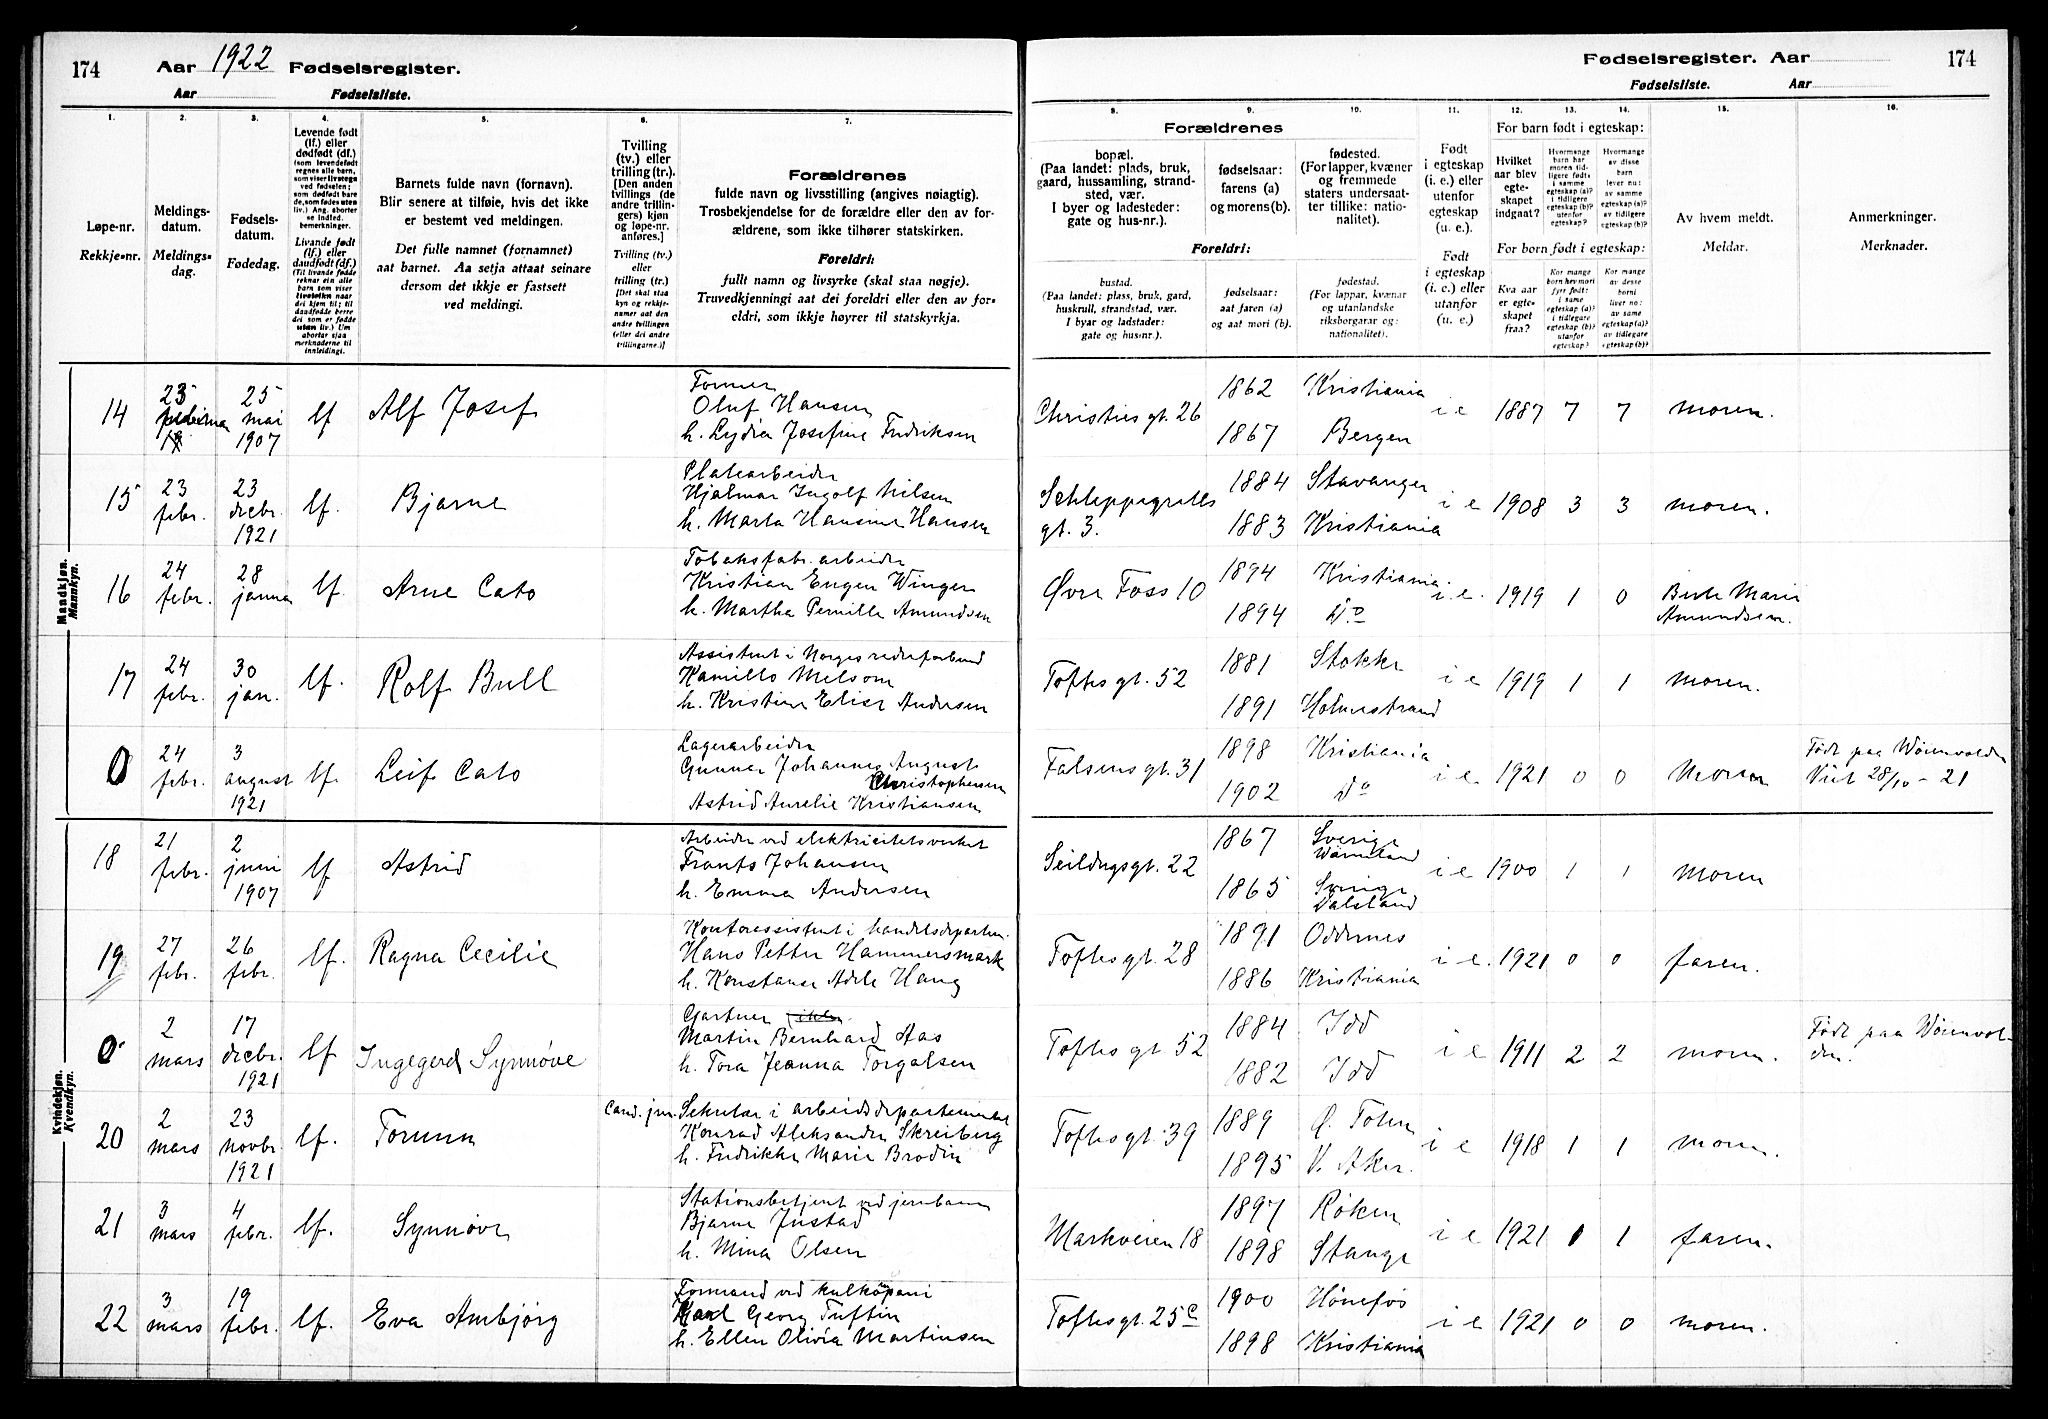 174 Aar 1922 Fødselsregister.
Aar Fødselsliste.
Fødselsregister. Aar 174
Fødselsliste. Aar
1. 2. 3. 4. 5. 6. 7. 8. 9. 10. 11. 12. 13. 14. 15. 16.
Løpe-nr.
Rekkje-nr.
Meldings-
datum.
Meldings-
dag.
Fødsels-
datum.
Fødedag.
Levende født
(lf.) eller
dødfødt (df.)
Livande født
(lf.) eller
daudfødt (df.)
Barnets fulde navn (fornavn).
Blir senere at tilføie, hvis det ikke
er bestemt ved meldingen.
Det fulle namnet (fornamnet)
aat barnet. Aa setja attaat seinare
dersom det ikkje er fastsett
ved meldingi.
Tvilling
(tv.) eller
trilling (tr.).
[Den anden
tvillings (de
andre trillin-
gers) kjøn
og løpe-nr.
anføres.]
Tvilling (tv.)
eller
trilling (tr.)
[Det skal staa
kyn og rekkje-
numer aat den
andre tvillingen
(eller dei andre
trillingarne.)]
Forældrenes
fulde navn og livsstilling (angives nøiagtig).
Trosbekjendelse for de forældre eller den av for-
ældrene, som ikke tilhører statskirken.
Foreldri:
fullt namn og livsyrke (skal staa nøgje).
Truvedkjenningi aat dei foreldri eller den av for-
eldri, som ikkje høyrer til statskyrkja.
Forældrenes
bopæl.
(Paa landet: plads, bruk,
gaard, hussamling, strand-
sted, vær.
I byer og ladesteder:
gate og hus-nr.).
Foreldri:
bustad.
(Paa landet: plass, bruk, gard,
huskrull, strandstad, vær.
I byar og ladstader:
gate og hus-nr.).
fødselsaar:
farens (a)
og morens (b).
fødselsaar:
aat faren (a)
og aat mori (b).
fødested.
(For lapper, kvæner
og fremmede
staters undersaat-
ter tillike: natio-
nalitet).
fødestad.
(For lappar, kvænar
og utanlandske
riksborgarar og:
nationalitet).
Født
i egteskap
(i. e.) eller
utenfor
egteskap
(u. e.).
Født
i egteskap
(i. e.) eller
utanfor
(u. e.)
For barn født i egteskap:
Hvilket
aar blev
egte-
skapet
indgaat?
For born født i egteskap:
Kva aar
er egte-
skapet
fraa?
Av hvem meldt.
Meldar.
Anmerkninger.
Merknader.
Mandkjøn.
Mannkyn.
14 25 mai 1907 lf Alf Josef
Oluf Hansen
h. Lydia Josefine Fredriksen
Christies gt. 26 1862 Kristiania 1867 Bergen i e 1887 7 7 moren.
15 23 febr. 23 decbr. 1921 lf. Bjarne
Platearbeider
Hjalmar Ingolf Nilsen
h. Marta Hansine Hansen
Schleppegrells gt. 3. 1884 Stavanger 1883 Kristiania i e 1908 3 3 moren.
16 24 febr. 28 januar lf. Arne Cato
Tobaksfabr. arbeider
Kristian Eugen Winger
h. Martha Pernille Amundsen
Øvre Foss 10 1894 Kristiania 1894 Do i. e. 1919 1 0 Berte Marie Amundsen.
17 24 febr. 30 jan. lf. Rolf Bull
Assistent i Norges rederforbund
Kamillo Melsom
h. Kristine Elise Andersen
Toftes gt. 52 1881 Stokke 1891 Holmestrand i e 1919 1 1 moren.
0 24 febr. 3 august 1921 lf. Leif Cato
Lagerarbeider
Gunnar Johannes August
Christophersen
Astrid Aurelie Kristiansen
Falsens gt. 31 1898 Kristiania 1902 Do i e 1921 0 0 Moren Født paa Wøienvolden
Viet 28/10 - 21
Kvindekjøn.
Kvendkyn.
18 21 febr. 2 juni 1907 lf Astrid
Arbeider ved elektricitetsverket
Frants Johansen
h. Emma Andersen
Seildugsgt. 22 1867 Sverige Wärmland 1865 Sverige Dalsland i e 1900 1 1 moren
19 27 febr. 26 febr. lf. Ragna Cecilie
Kontorassistent i handelsdepartem.
Hans Petter Hammersmark
h. Konstanse Adele Haug
Toftes gt. 28 1891 Oddernes 1886 Kristiania i e. 1921 0 0 faren.
0 2 mars 17 decbr. 1921 lf Ingegerd Synnøve
Gartner
Martin Bernhard Aas
h. Tora Jeanna Torgalsen
Toftes gt. 52 1884 Idd 1882 Idd i e 1911 2 2 moren. Født paa Wøienvol-
den.
20 2 mars 23 novbr. 1921 lf. Torunn
Cand. jur. Sekretær i arbeidsdepartementet
Konrad Aleksander Skreiberg
h. Fredrikke Marie Brodin
Toftes gt. 39 1889 Ø. Toten 1895 V. Aker. i e 1918 1 1 moren.
21 3 mars 4 febr. lf. Synnøve
Stationsbetjent ved jernbanen
Bjarne Justad
h. Mina Olsen
Markveien 18 1897 Røken 1898 Stange i e 1921 1 faren.
22 3 mars 19 febr. lf. Eva Ambjørg
Formand ved kulkompani
Karl Georg Tuftin
h. Ellen Olivia Martinsen
Toftes gt. 25 c 1900 Hønefos 1898 Kristiania i e 1921 0 0 moren.